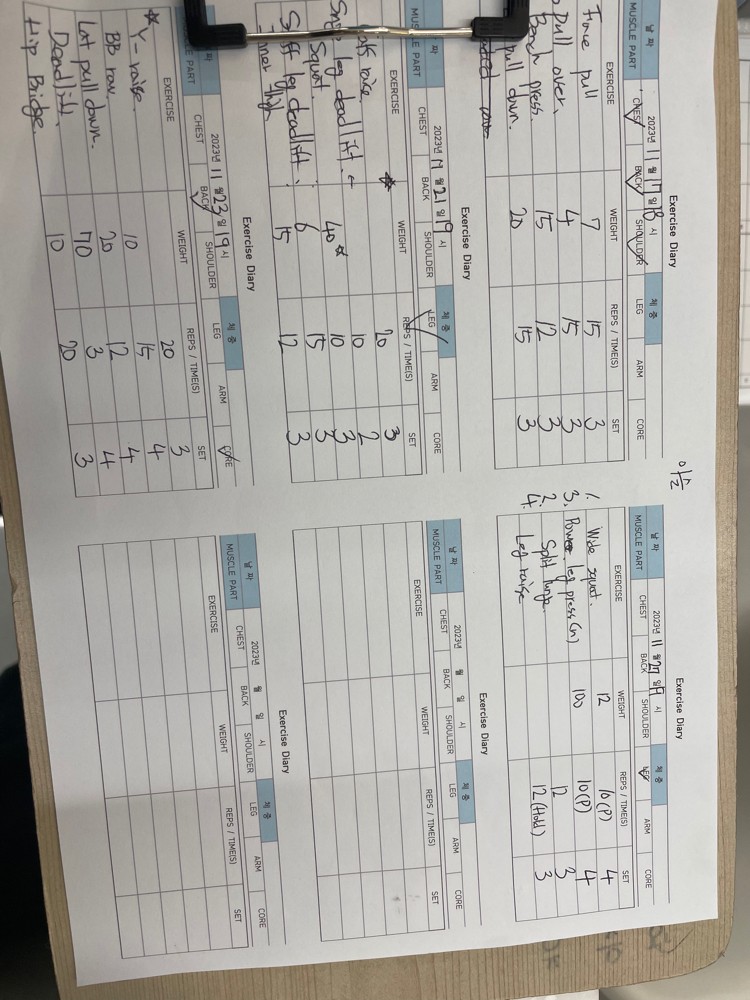 Exercise Diary
날 짜 2023년 11 월 17 일 18 시 체 중
MUSCLE PART CHEST BACK SHOULDER LEG ARM CORE
EXERCISE WEIGHT REPS / TIME(S) SET
Face pull 7 15 3
Pull over. 4 15 3
Bench press. 15 12 3
pull down. 20 15 3
Exercise Diary
짜 2023년 11 월 21 일 19 시 체 중
MUSCLE PART CHEST BACK SHOULDER LEG ARM CORE
EXERCISE WEIGHT REPS / TIME(S) SET
raise 20 3
leg deadlift. 10 2
Squat. 40 10 3
Stiff leg deadlift. 6 15 3
thigh 15 12 3
Exercise Diary
짜 2023년 11 월 23 일 19 시 체 중
PART CHEST BACK SHOULDER LEG ARM CORE
EXERCISE WEIGHT REPS / TIME(S) SET
Y-raise 20 3
BB row. 10 15 4
Lat pull down. 20 12 4
Deadlift. 70 3 4
Hip Bridge. 10 20 3
Exercise Diary
날 짜 2023년 11 월 27 일 19 시 체 중
MUSCLE PART CHEST BACK SHOULDER LEG ARM CORE
EXERCISE WEIGHT REPS / TIME(S) SET
1. Wide squat. 12 10(P) 4
3. Power leg press(n) 100 10(P) 4
2. Split lunge. 12 3
4. Leg raise 12(Hold) 3
Exercise Diary
날 짜 2023년 월 일 시 체 중
MUSCLE PART CHEST BACK SHOULDER LEG ARM CORE
EXERCISE WEIGHT REPS / TIME(S) SET
Exercise Diary
날 짜 2023년 월 일 시 체 중
MUSCLE PART CHEST BACK SHOULDER LEG ARM CORE
EXERCISE WEIGHT REPS / TIME(S) SET